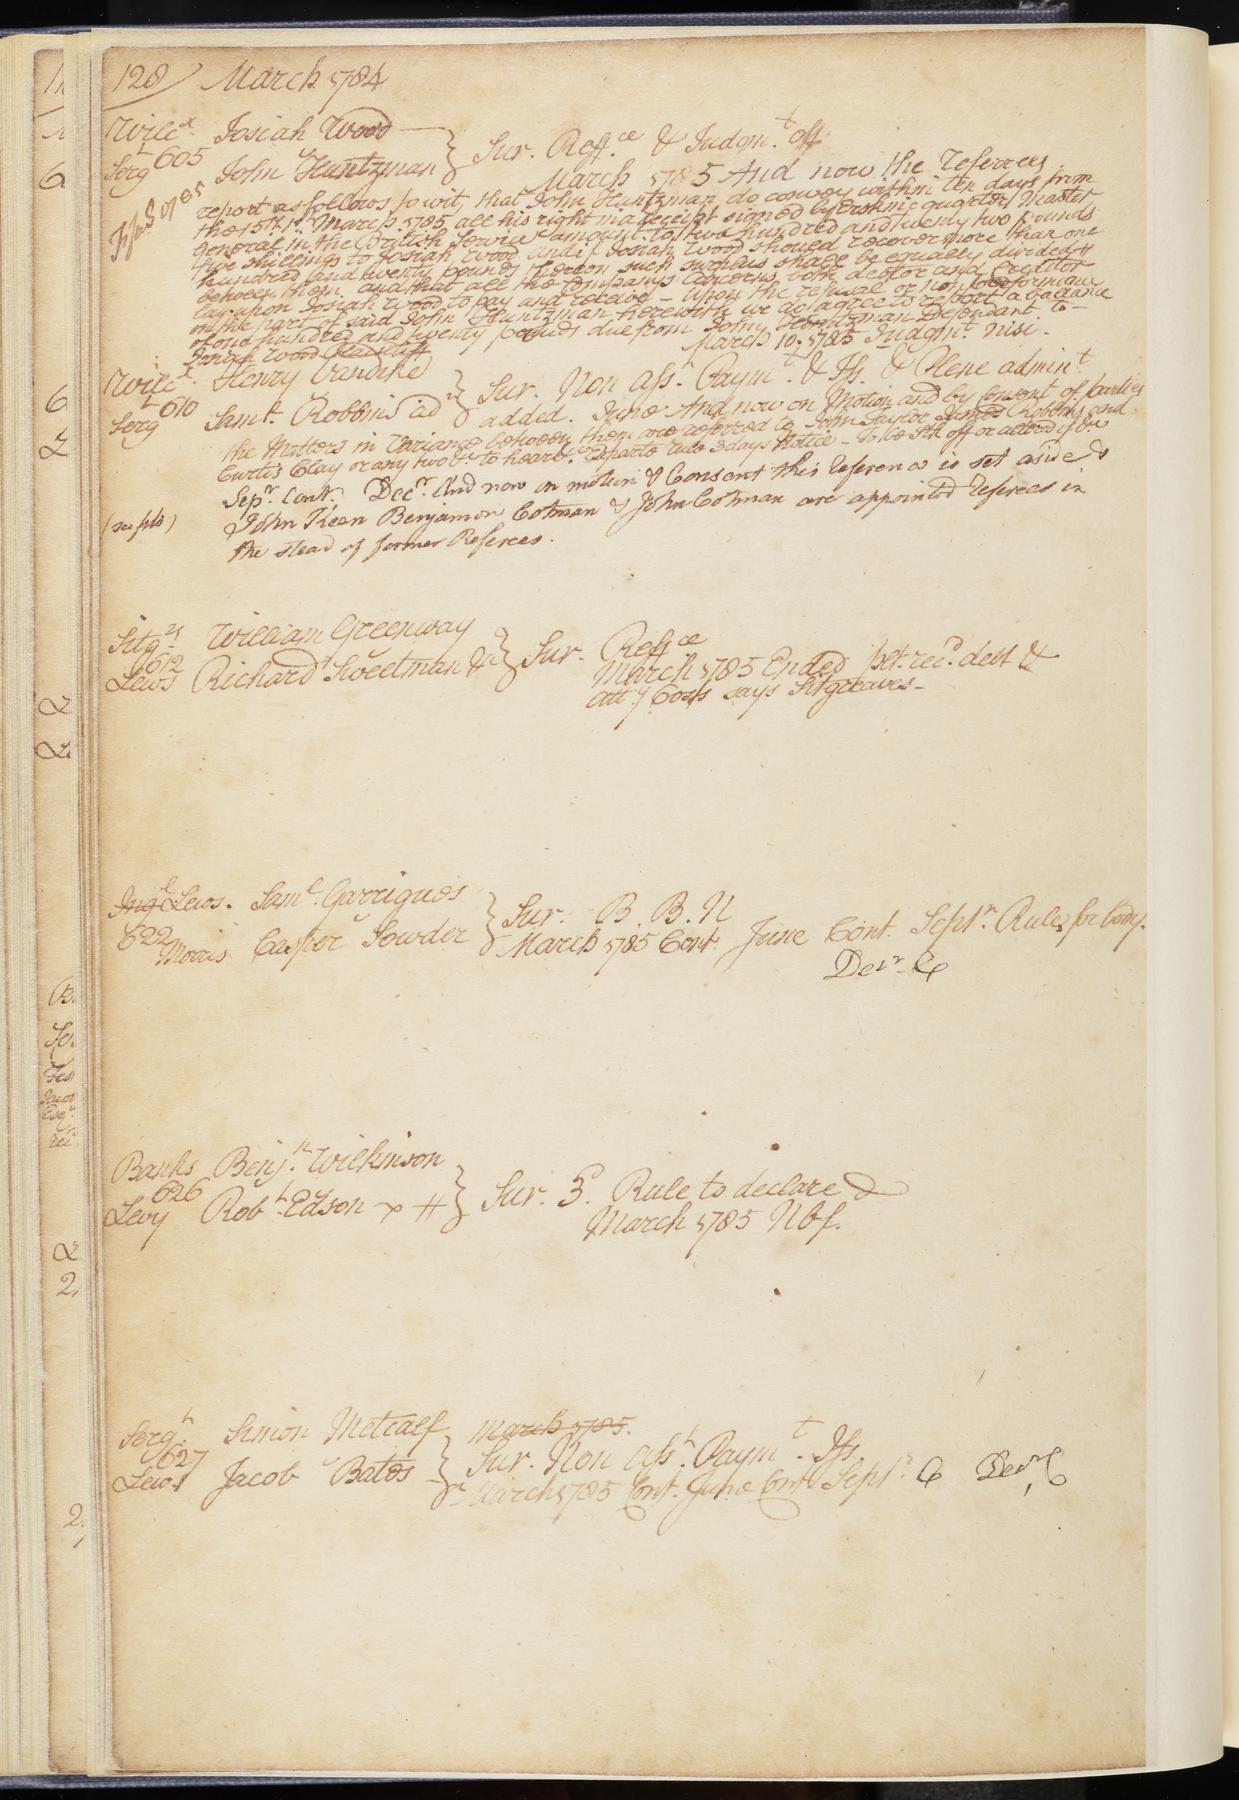 128 March 1784
Wilc.x Josiah Wood
605
Serg.t John Huntzman } Sur. Reff.ce & Judgm.t off
March 1785 And now the referrees
report as follows to wit, that John Huntzman do convey within ten days from
the 15th March 1785 all his right in a receipt signed by Erskine quarter Master
General in the British Service amount. to two hundred and twenty two pounds
five shillings to Josiah Wood and if Josiah Wood should recover more than one
hundred and twenty pounds thereon such surplus shall be equally divided
between them, and that all the Companys Concerns both debtor and Creditor
lay upon Josiah Wood to pay and receive – upon the refusal or non performance
on the part of said John Huntzman herewith we do agree to report a ballance
of one hundred and twenty pounds due from John Huntzman Defendant to
Josiah Wood Plaintiff March 10, 1785 Judgm.t nisi
Wilc.x Henry Vandike
610
Serg.t Sam.l Robbins ad } Sur. Non Ass.t Paym.t & Iss. & Plene admin.t
added. June And now on Motion and by Consent of parties
the Matters in Variance between them are referred to John Taylor James Robbins and
Curtis Clay or any two &c to hear &c. Exparte rule 3 days Notice – To be Stk off or altered if &c
(see fild) Sep.r Cont. Dec.r And now on motion & Consent this reference is set aside &
John Keen Benjamin Cotman & John Cotman are appointed referees in
the stead of former Referees.
Sitg.s William Greenway
612
Lewis Richard Sweetman &c } Sur. Reff.ce
March 1785 Ended plt. rec.d debt &
att.y Costs says Sitgreaves –
Ing.l Lewis. Sam.l Garrigues
622
Morris Casper Sowder } Sur. B. B. N
March 1785 Cont. June Cont. Sept.r Rule for body.
Dec.r C
Banks Benj.n Wilkinson
626
Levy Rob.t Edson x # } Sur. 3.d Rule to declare &
March 1785 Nbf.
Serg.t Simon Metcalf March 1785.
627
Lewis Jacob Bates } Sur. Non Ass.t Paym.t Iss.
March 1785 Cont. June Cont. Sept.r C Dec.r C